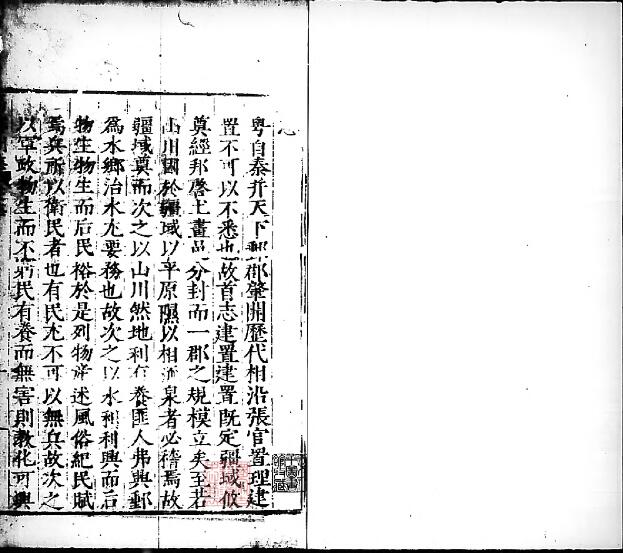 粤自秦并天下鄞郡肇開歷代相沿張官置理建
置不可以不悉也故首志建置建置既定疆域攸
奠經邦啓土畫邑分封而一郡之規模立矣至若
山川國於疆域以平原隰以相泉者必稽焉故
疆域奠而次之以山川然地利有養匪人弗興鄞
為水鄉治水尤要務也故次之以水利利興而后
物生物生而后民裕於是列物産述風俗紀民賦
焉兵所以衛民者也有民尤不可以無兵故次之
以軍政物生而不窮民有養而無害則教化可興